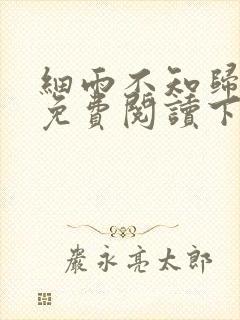 細雨不知歸
免費閱讀下
嚴永亮太郎